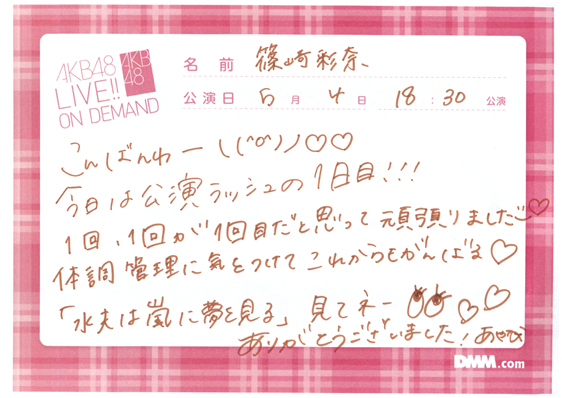 AKB48
LIVE!!
ON DEMAND
AKB
48
名前 篠崎彩奈
公演日 5月4日 18:30 公演
こんばんわー\(^o^)ノ♡♡
今日は公演ラッシュの1日目!!!
1回、1回が1回目だと思って頑張りました♡
体調管理に気をつけてこれからもがんばる♡
「水夫は嵐に夢を見る」見てネー ♡♡
ありがとうございました!
DMM.com